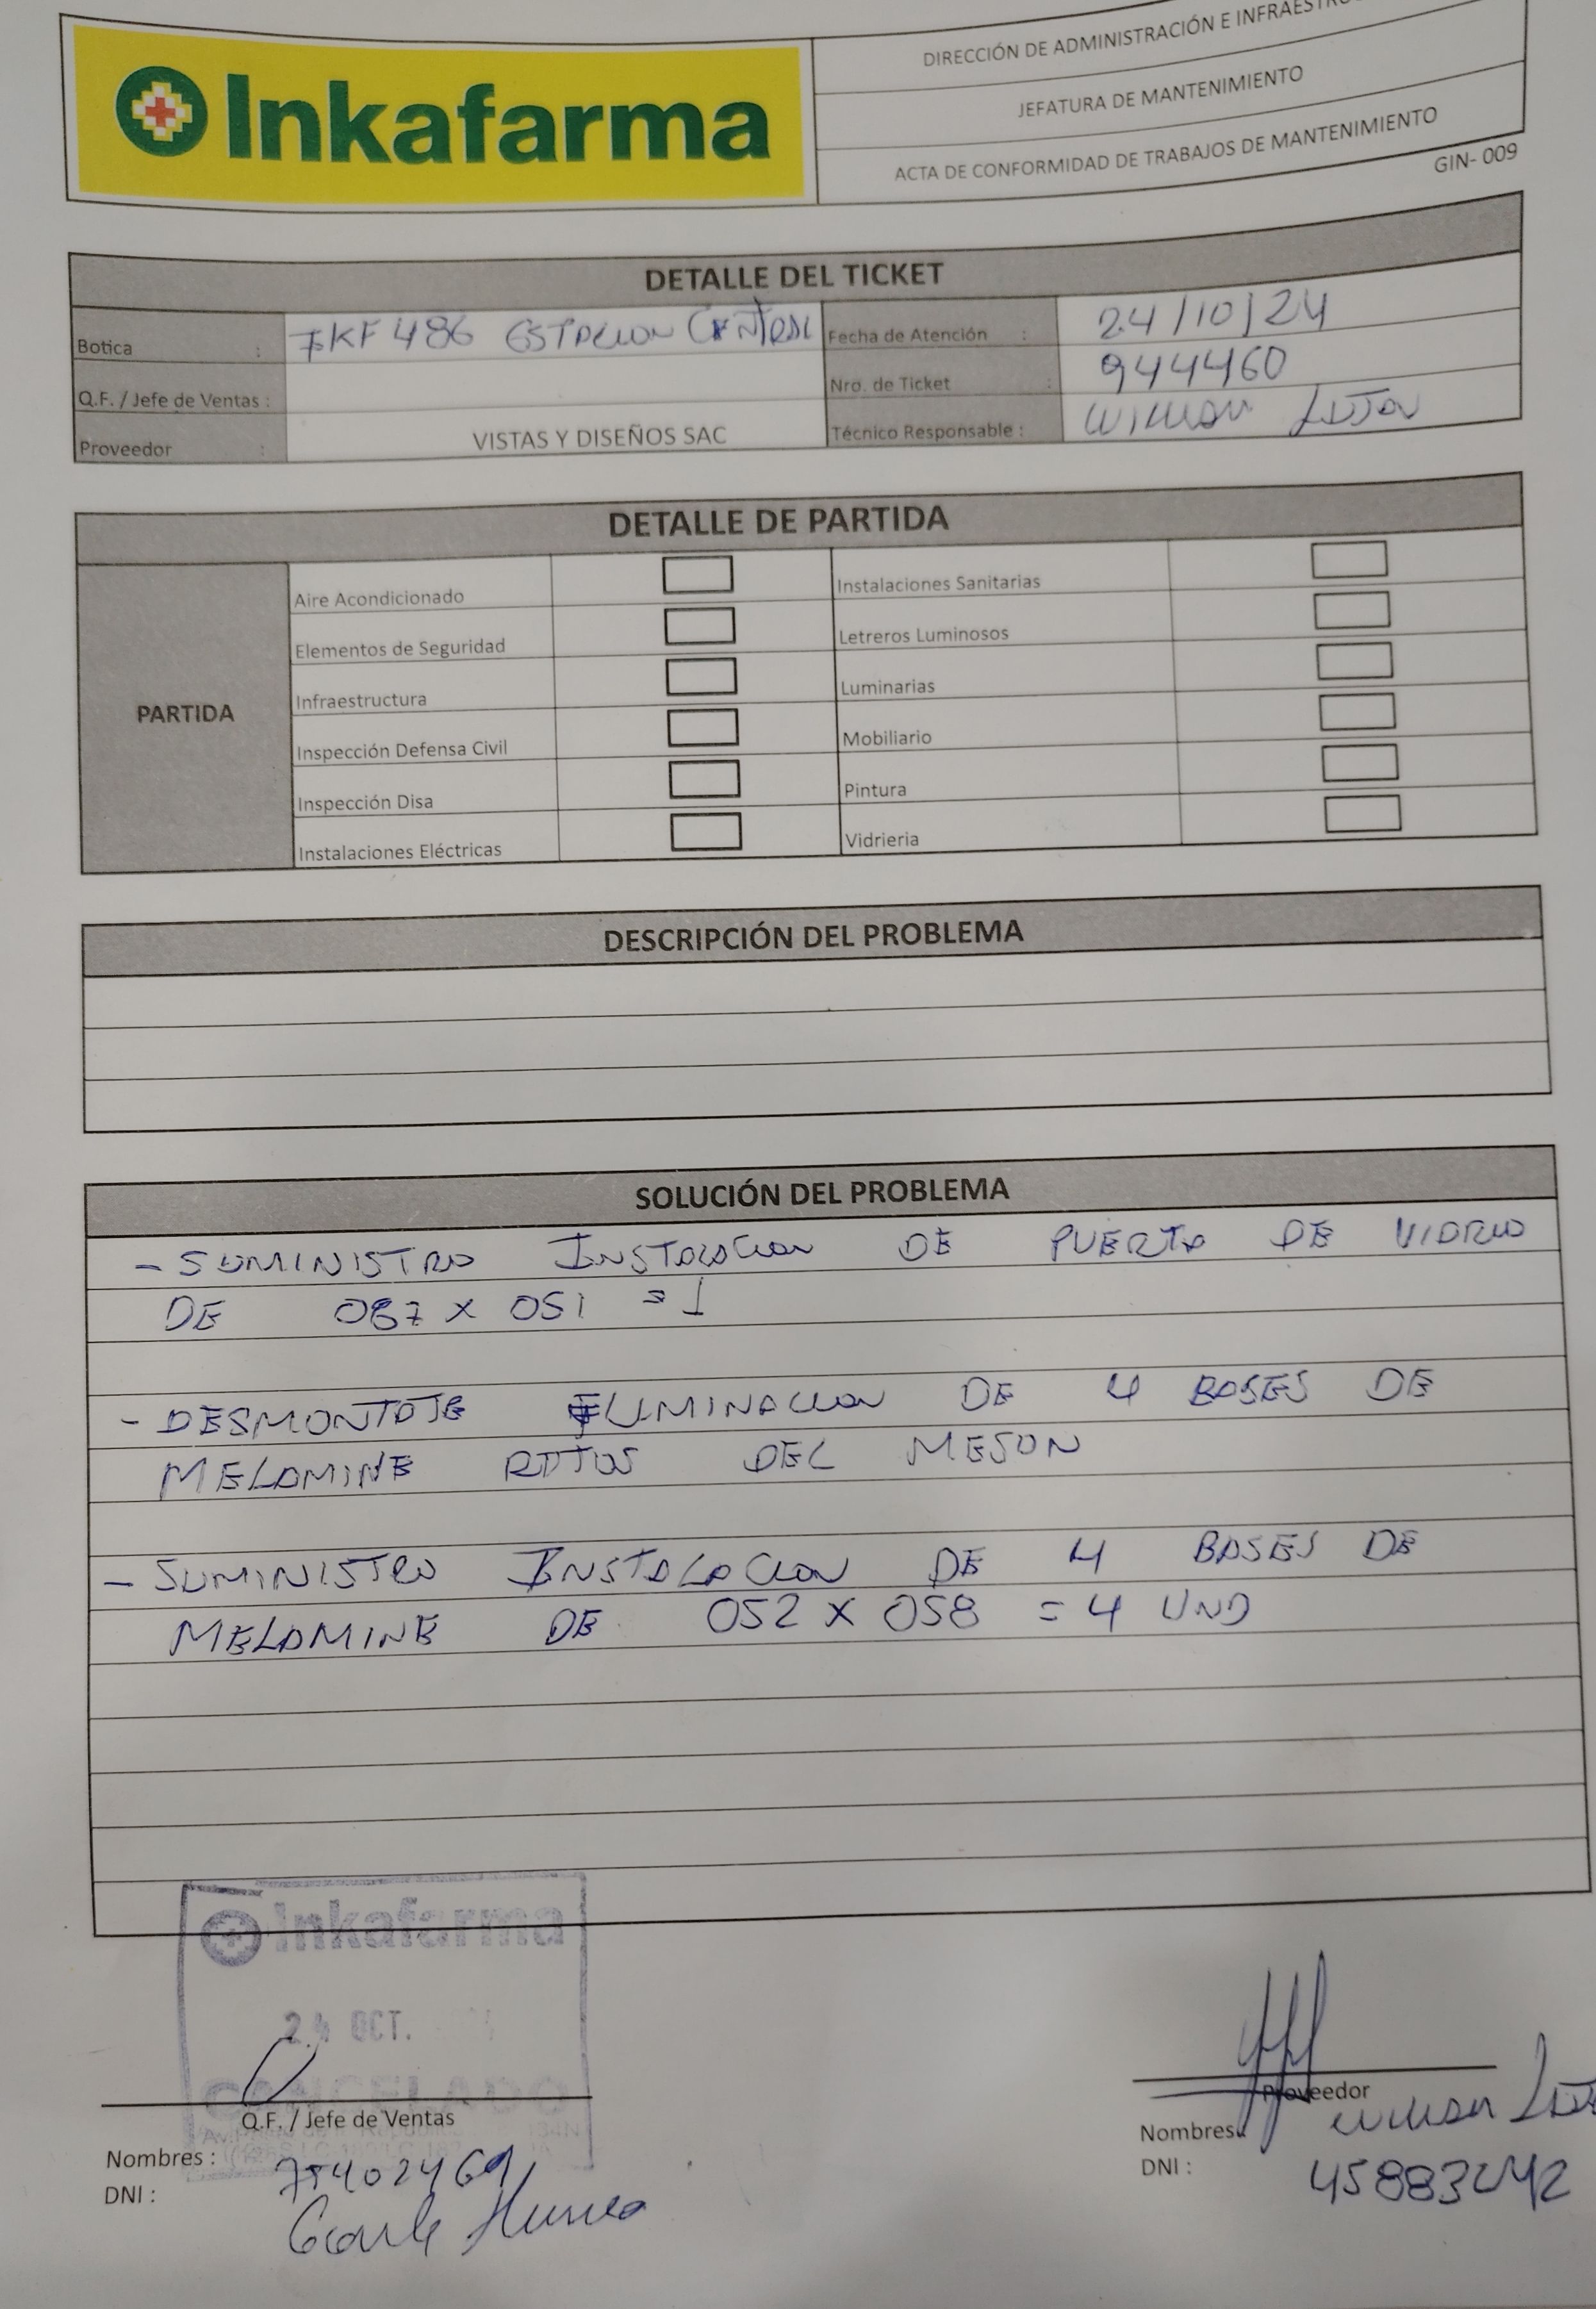 Inkafarma
DIRECCIÓN DE ADMINISTRACIÓN E
JEFATURA DE MANTENIMIENTO
ACTA DE CONFORMIDAD DE TRABAJOS DE MANTENIMIENTO
GIN- 009
DETALLE DEL TICKET
Botica : IKF 486 ESTACION CENTRAL Fecha de Atención : 24/10/24
Q.F. / Jefe de Ventas : Nro. de Ticket : 944460
Proveedor : VISTAS Y DISEÑOS SAC Técnico Responsable :
DETALLE DE PARTIDA
PARTIDA
Aire Acondicionado Instalaciones Sanitarias
Elementos de Seguridad Letreros Luminosos
Infraestructura Luminarias
Inspección Defensa Civil Mobiliario
Inspección Disa Pintura
Instalaciones Eléctricas Vidrieria
DESCRIPCIÓN DEL PROBLEMA
SOLUCIÓN DEL PROBLEMA
- SUMINISTRO INSTALACION DE PUERTA DE VIDRIO
DE 087 X 051 = 1
- DESMONTAJE ELIMINACION DE 4 BASES DE
MELAMINE ROTOS DEL MESON
- SUMINISTRO INSTALACION DE 4 BASES DE
MELAMINE DE 052 X 058 = 4 UND
Inkafarma
24 OCT.
CANCELADO
Q.F. / Jefe de Ventas
Nombres :
DNI :
Proveedor
Nombres
DNI :